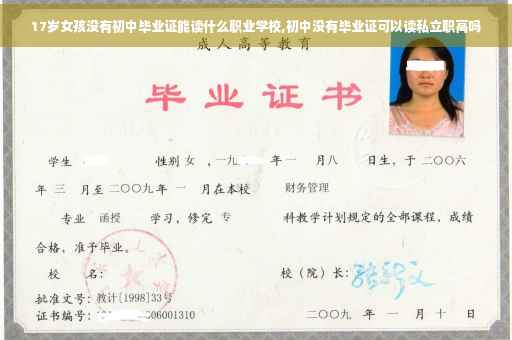 17岁女孩没有初中毕业证能读什么职业学校,初中没有毕业证可以读私立职高吗
成人高等教育
毕业证书
学生 性别 女 ,一九 年一 月八 日生，于二〇〇六
年 三 月至二〇〇九年 一 月在本校 财务管理
专业 函授 学习，修完 专 科教学计划规定的全部课程，成绩
合格，准予毕业。
校 名： 校（院）长：
批准文号：教计[1998]33号
证书编号： 06001310 二〇〇九 年 一 月 十 日